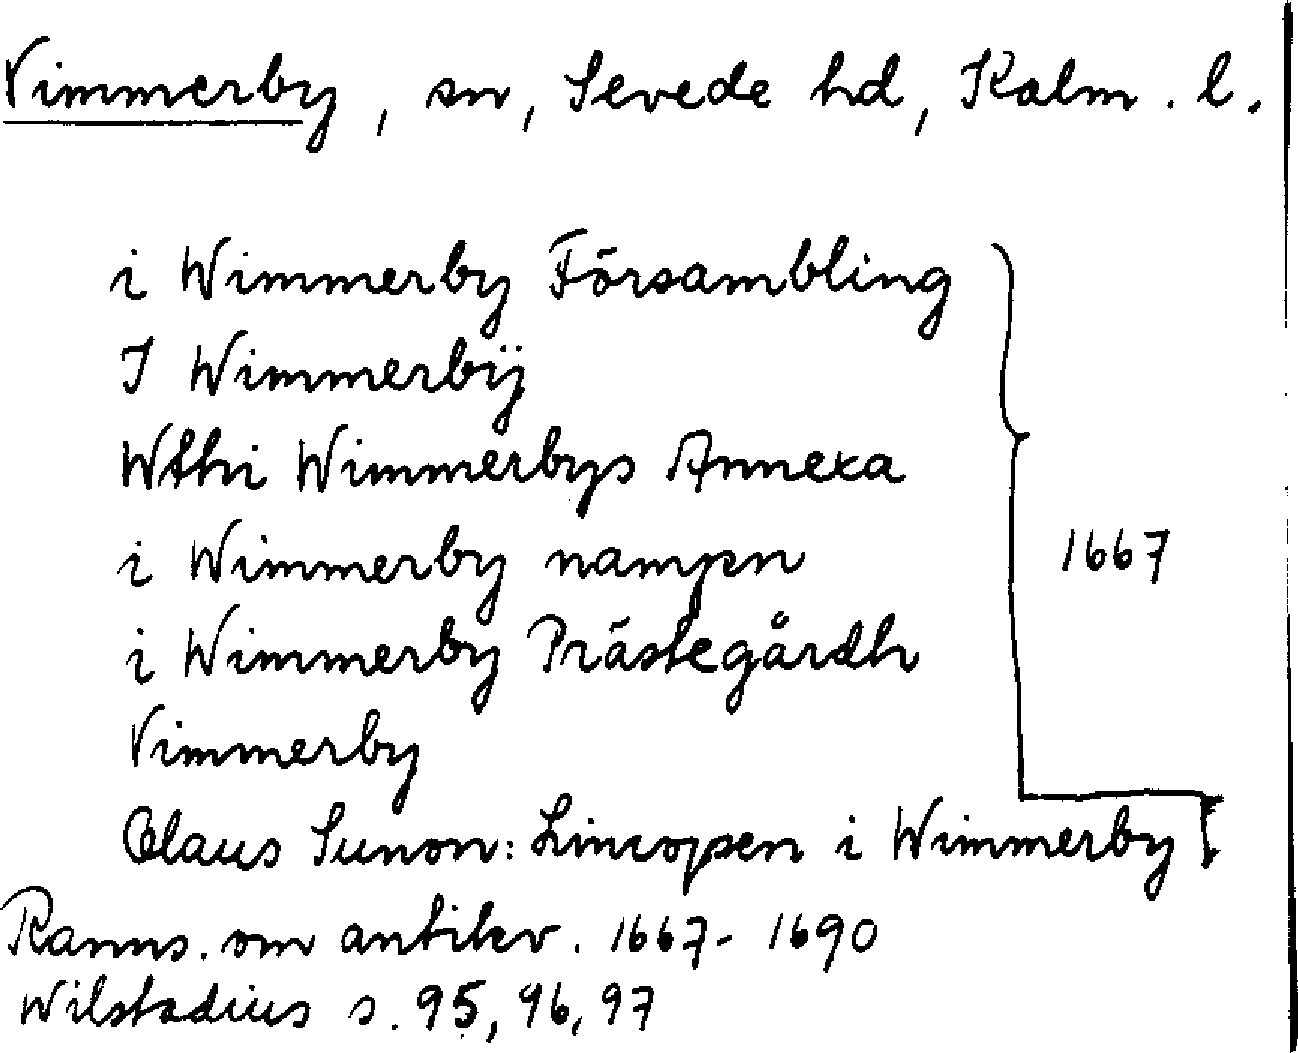 Vimmerby, sn, Sevede hd, Kalm. l.
i Wimmerby Försambling
I Wimmerbÿ
Wthi Wimmerbys Annexa
i Wimmerby nampn
i Wimmerby Prästegårdh
1667
Vimmerby
Olaus Sunon: Lincopsen i Wimmerby
Ranns. om antikv. 1667-1690
Wilstadius s. 95, 96, 97